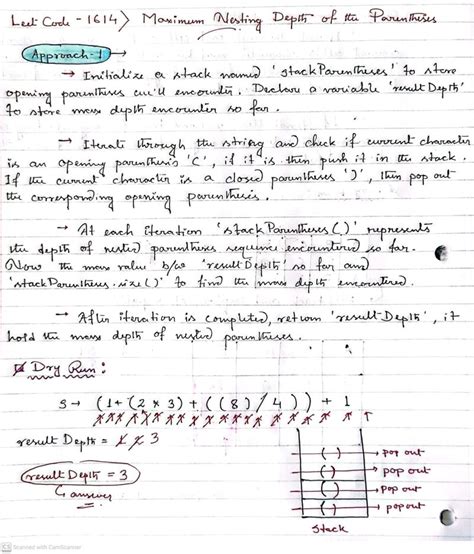 Leet Code - 1614) Maximum Nesting Depth of the Parentheses
Approach-1
→ Initialize a stack named 'stackParentheses' to store
opening parentheses we'll encounter. Declare a variable 'resultDepth'
to store max depth encounter so far.
→ Iterate through the string and check if current character
is an opening parenthesis '(', if it is then push it in the stack.
If the current character is a closed parentheses ')', then pop out
the corresponding opening parenthesis.
→ At each iteration 'stackParentheses()' represents
the depth of nested parentheses sequence encountered so far.
Now the max value b/w 'resultDepth' so far and
'stackParentheses.size()' to find the max depth encountered.
→ After iteration is completed, return 'resultDepth', it
hold the max depth of nested parentheses.
Dry Run:
S → (1+(2 × 3) + ((8)/4)) + 1
resultDepth = 1 2 3
resultDepth = 3
answer
( ) → pop out
( ) → pop out
( ) → pop out
( ) → pop out
Stack
CS Scanned with CamScanner